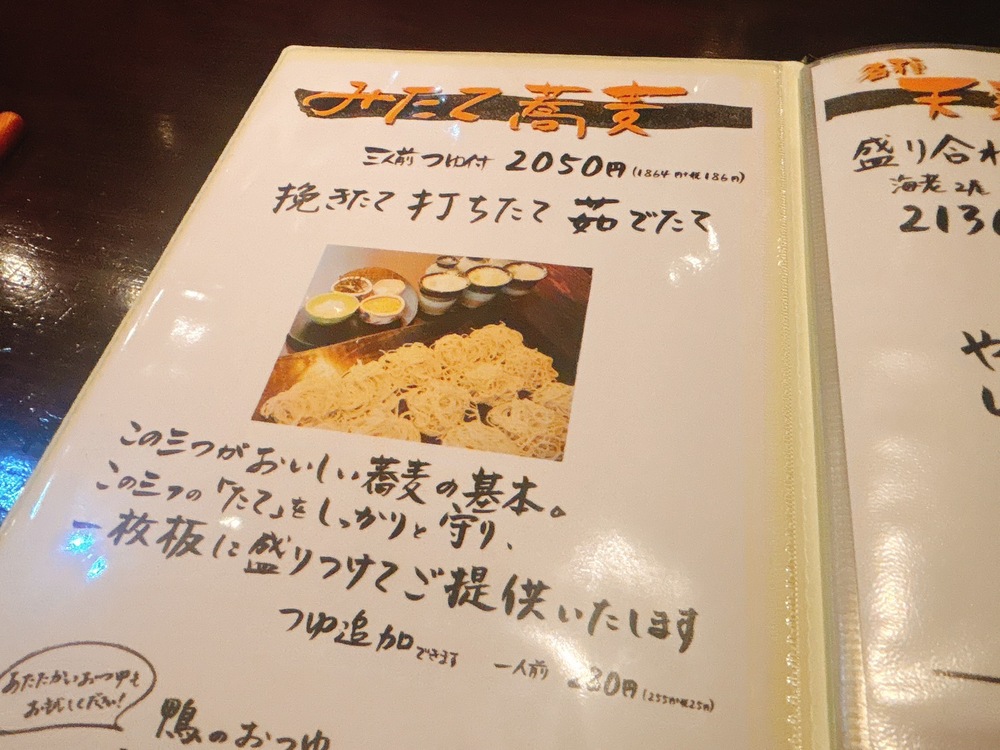 みたて蕎麦
三人前 つゆ付 2050円(1864円+税186円)
挽きたて 打ちたて 茹でたて
この三つがおいしい蕎麦の基本。
この三つの「たて」をしっかりと守り、
一枚板に盛りつけてご提供いたします
つゆ追加できます 一人前 280円(255円+税25円)
あたたかいおつゆも
お試しください!
鴨のおつゆ
天
盛り合わ
海老2尾
213
や
し